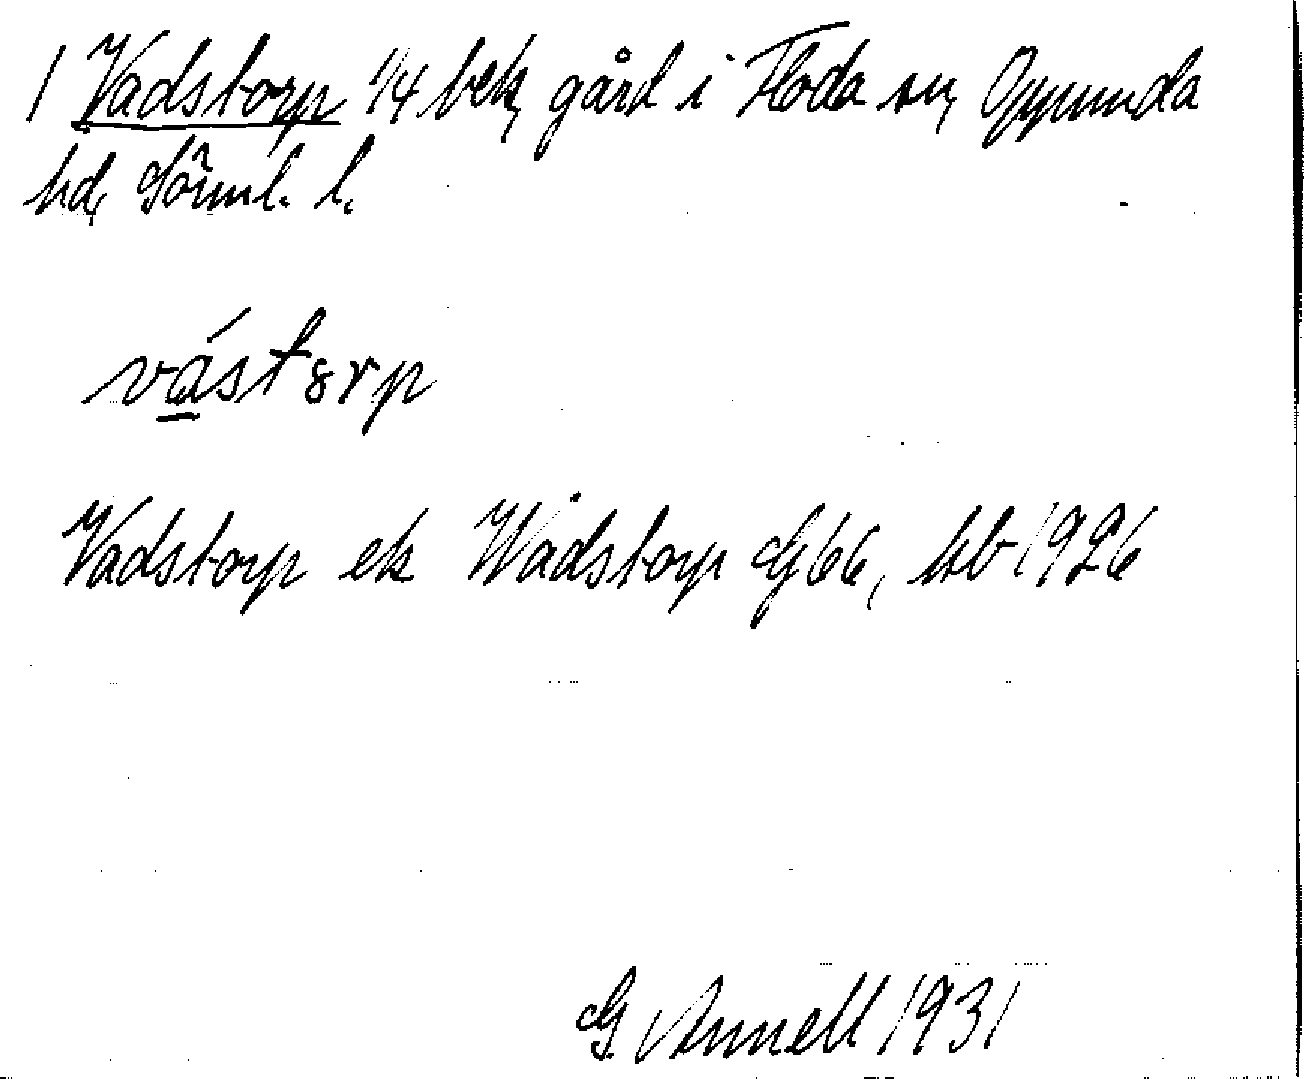 1 Vadstorp 1/4 bek, gård i Floda sn, Oppunda
hd, Sörml. l.
vástȣrp
Vadstorp ek Wådstorp G 66, kb 1926
G. Annell 1931